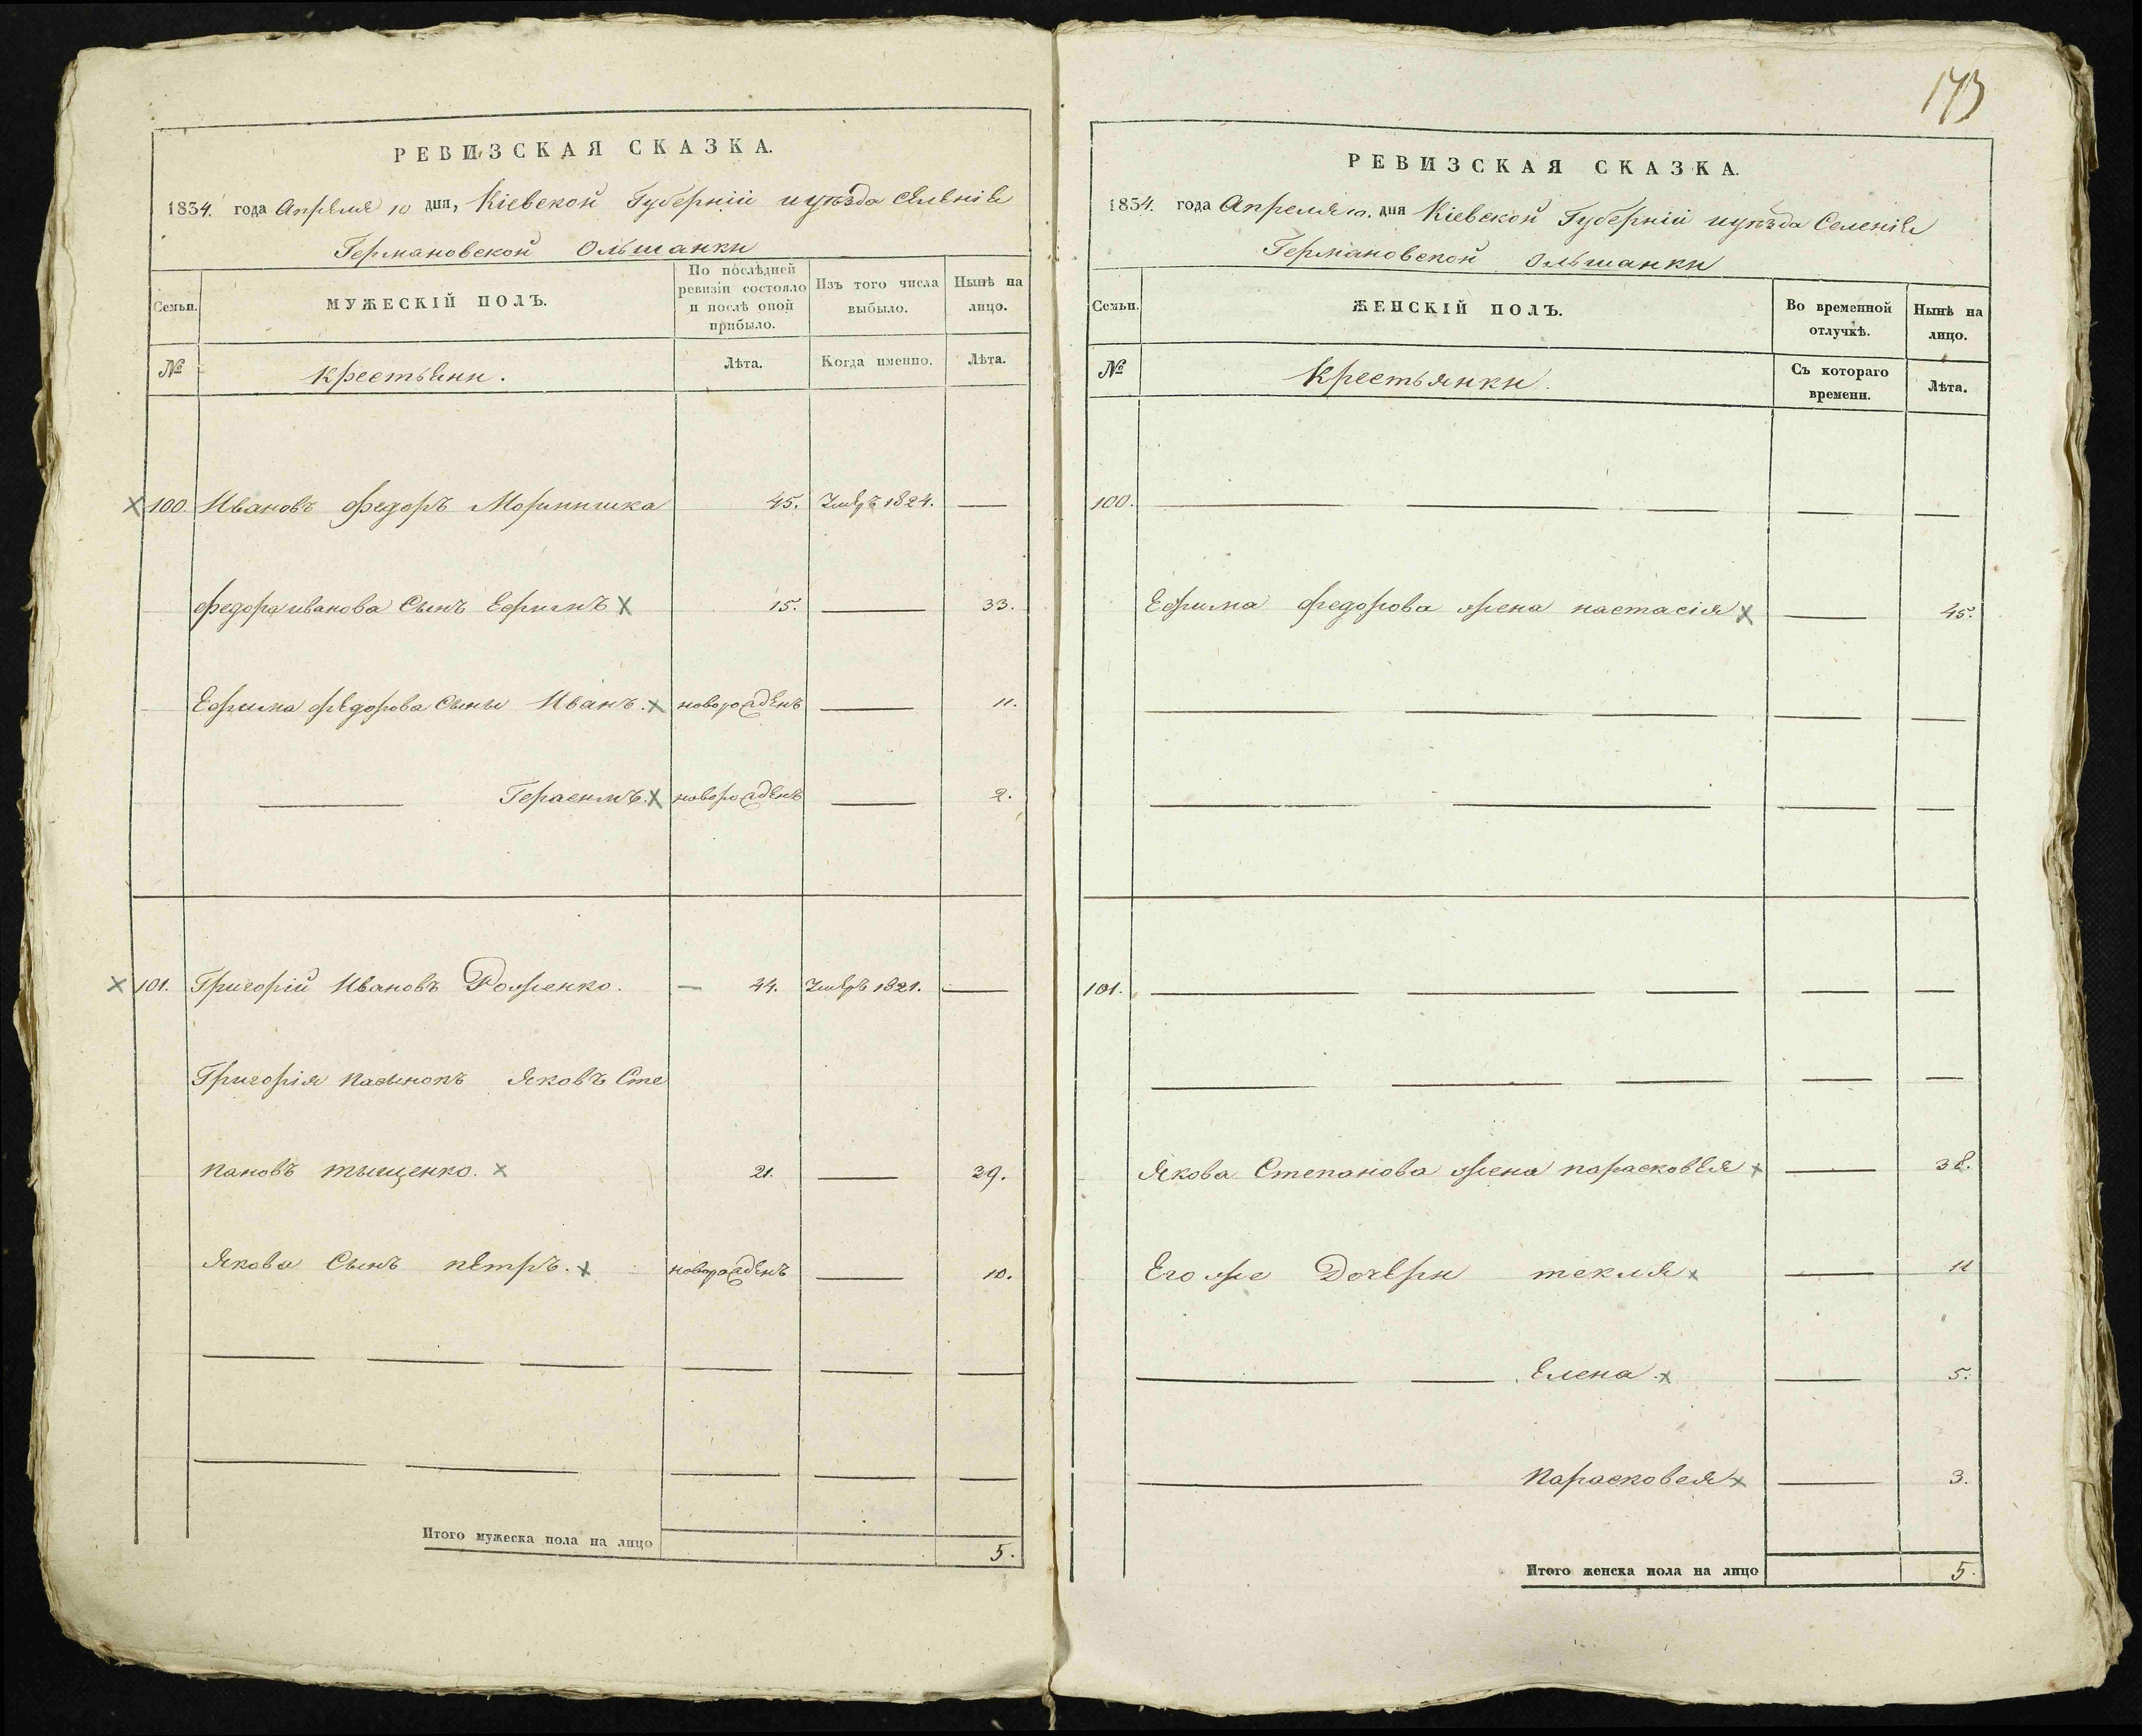 РЕВИЗСКАЯ СКАЗКА.
1834. года Апреля 10 дня, Кіевской Губерніи и уѣзда селенія
Германовской Ольшанки
Семьи.
МУЖЕСКІЙ ПОЛЪ.
По послѣдней ревизіи состояло и послѣ оной прибыло.
Изъ того числа выбыло.
Нынѣ на лицо.
№
Крестьяни.
Лѣта.
Когда именно.
Лѣта.
100. Ивановъ Федоръ 45. 1824. —
Федора иванова Сынъ Ефимъ 15. — 33.
Ефима федорова Сыны Иванъ. новорожденъ — 11.
— Герасимъ. новорожденъ — 2.
101. Григорій Ивановъ Роженко. — 44. 1821. —
Григорія пасынокъ Яковъ Сте
пановъ тыщенко. 21. — 29.
Якова Сынъ петръ. новорожденъ — 10.
Итого мужеска пола на лицо 5.
173
РЕВИЗСКАЯ СКАЗКА.
1834. года Апреля 10. дня Кіевской Губерніи и уѣзда Селенія
Германовской Ольшанки
Семьи.
ЖЕНСКІЙ ПОЛЪ.
Во временной отлучкѣ.
Нынѣ на лицо.
№
Крестьянки.
Съ котораго времени.
Лѣта.
100. — — — — —
Ефима федорова жена настасія — 45.
101. — — — — —
Якова Степанова жена парасковѣя — 38.
Его же Дочери текля — 11
— — Елена — 5.
— Парасковея — 3.
Итого женска пола на лицо 5.